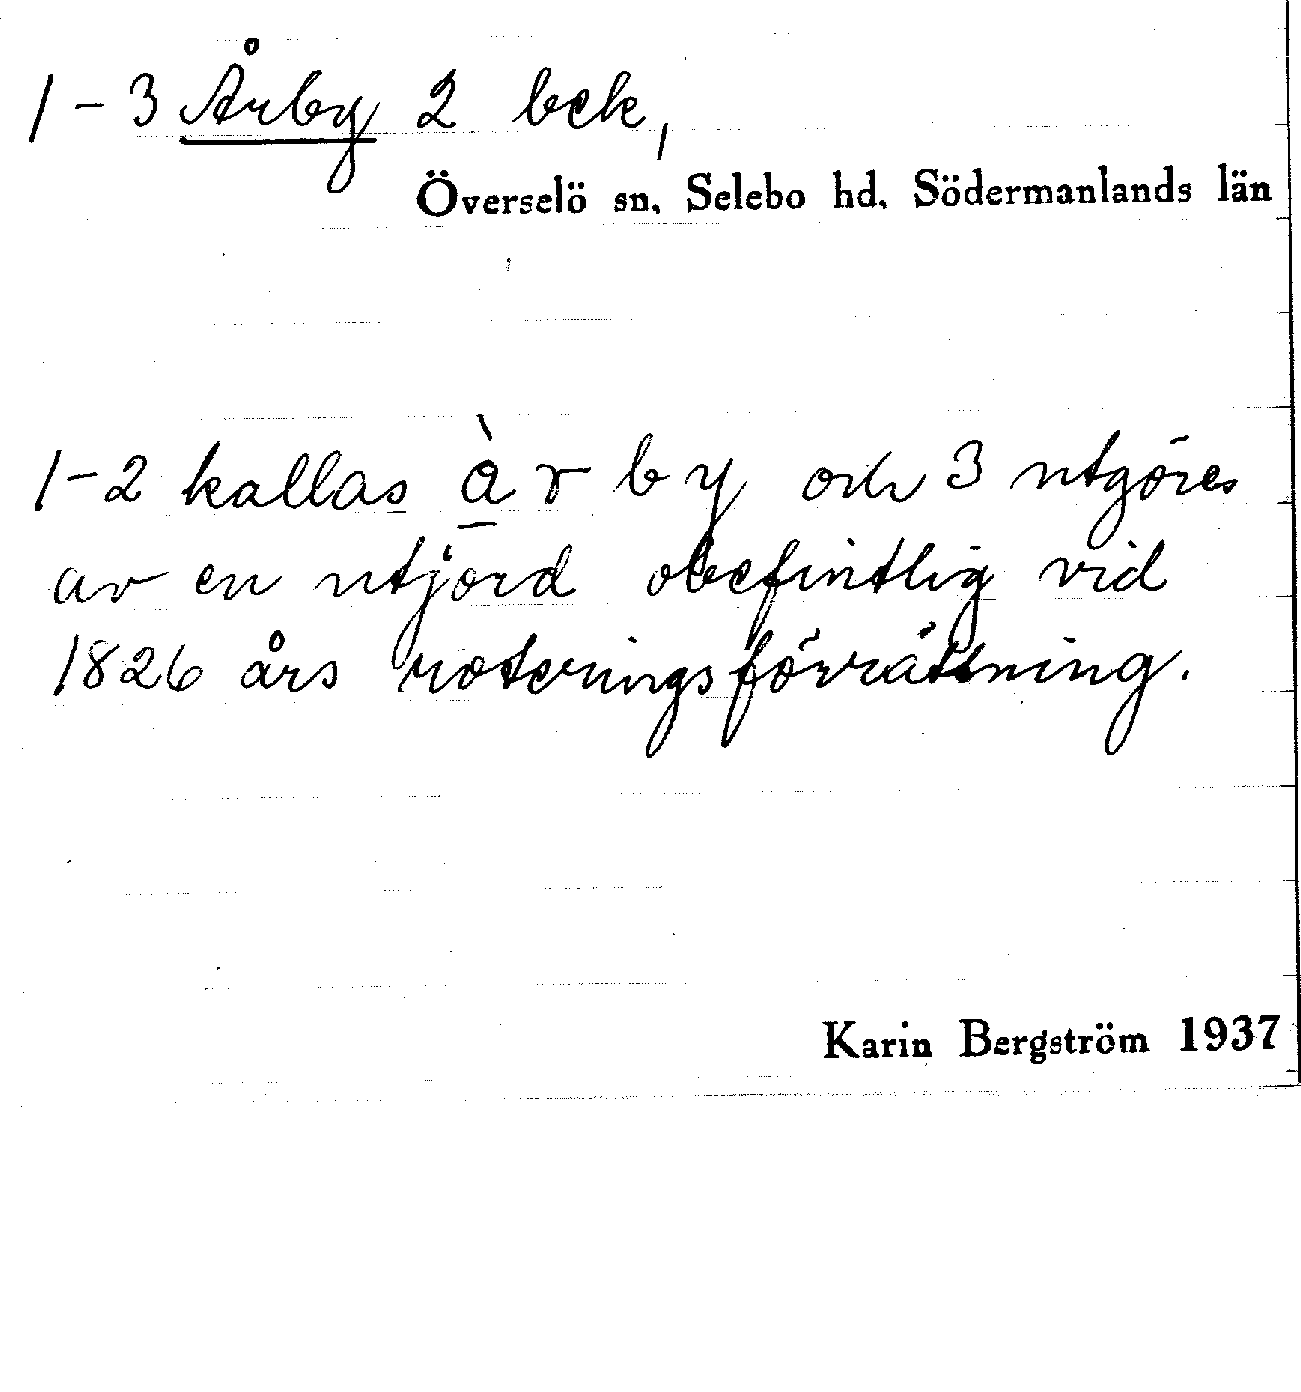 1-3 Årby 2 bek,
Överselö sn. Selebo hd. Södermanlands län
1-2 kallas à̱ r b y och 3 utgöres
av en utjord obefintlig vid
1826 års roteringsförrättning.
Karin Bergström 1937